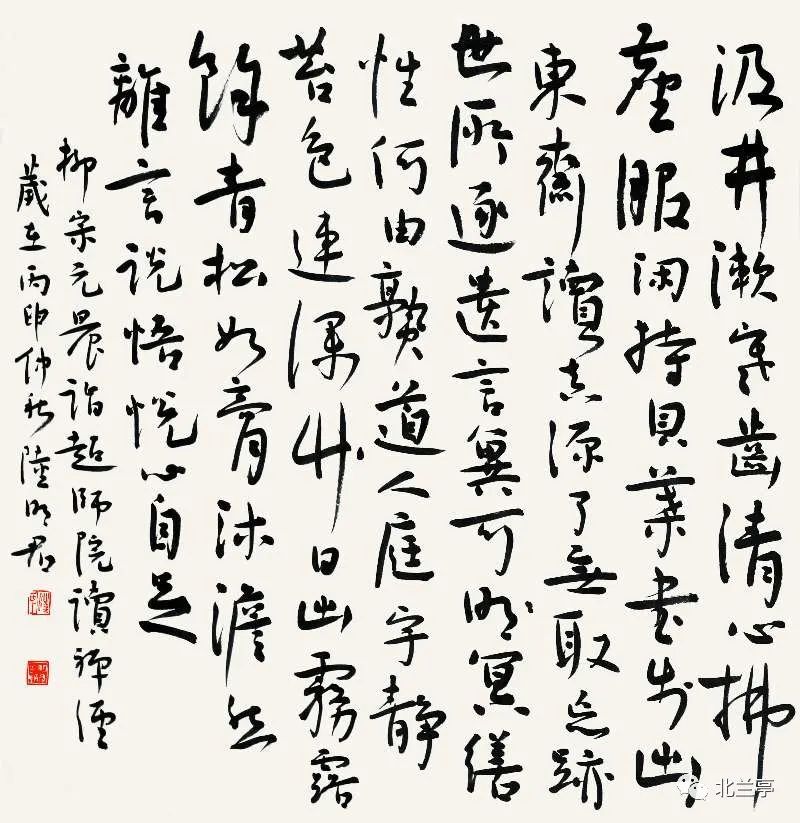 汲井漱寒齒清心拂
塵服閑持貝葉書步出
東齋讀真源了無取妄跡
世所逐遺言冀可明冥繕
性何由熟道人庭宇静
苔色連深竹日出霧露
餘青松如膏沐澹然
離言說悟悅心自足
柳宗元晨詣超師院讀禪經
歲在丙申仲秋陸明君
北兰亭